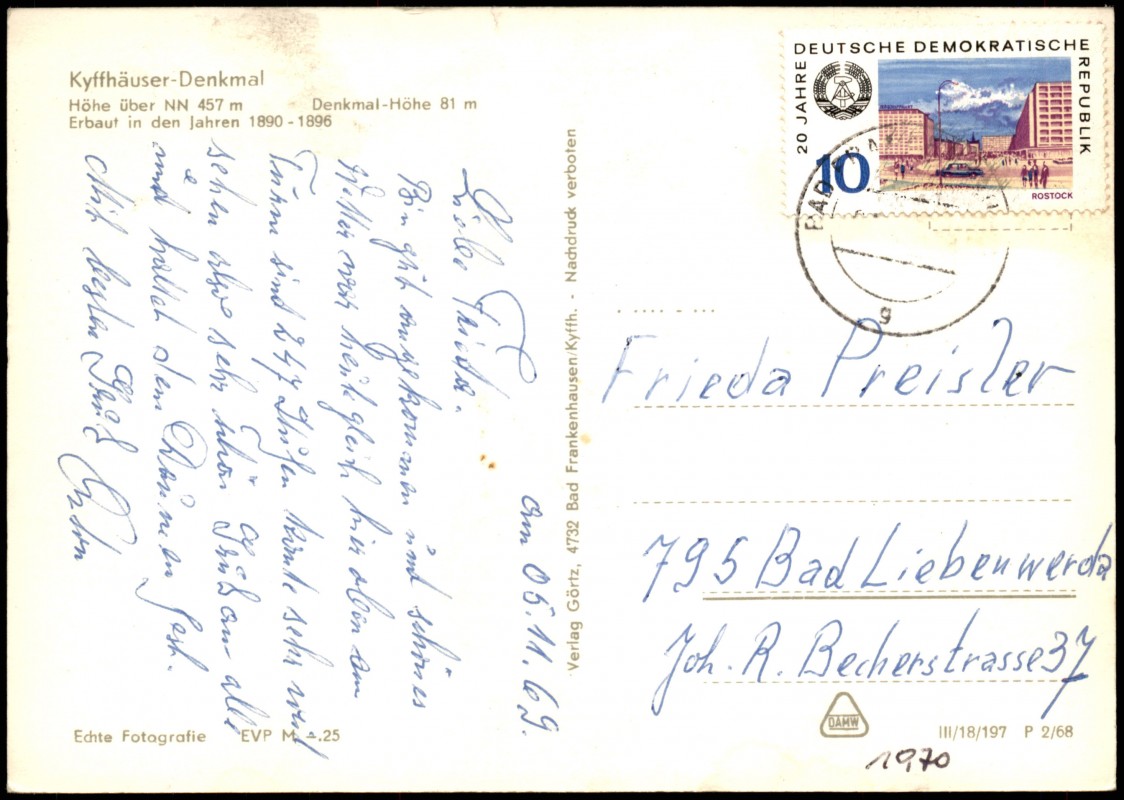 Kyffhäuser-Denkmal
Höhe über NN 457 m Denkmal-Höhe 81 m
Erbaut in den Jahren 1890 - 1896
am 05.11.69.
Liebe Frieda.
Bin gut angekommen und schönes
Wetter war heute gleich hier oben am
Turm sind 247 Stufen konnte sehr weit
sehen also sehr schön Gruß an alle
und haltet den Daumen fest.
Mit besten Gruß
Echte Fotografie EVP M -.25
Verlag Görtz, 4732 Bad Frankenhausen/Kyffh. - Nachdruck verboten
20 JAHRE DEUTSCHE DEMOKRATISCHE REPUBLIK
10
ROSTOCK
BAD
g
Frieda Preisler
795 Bad Liebenwerda
Joh. R. Becherstrasse 37
DAMW
III/18/197 P 2/68
19,70